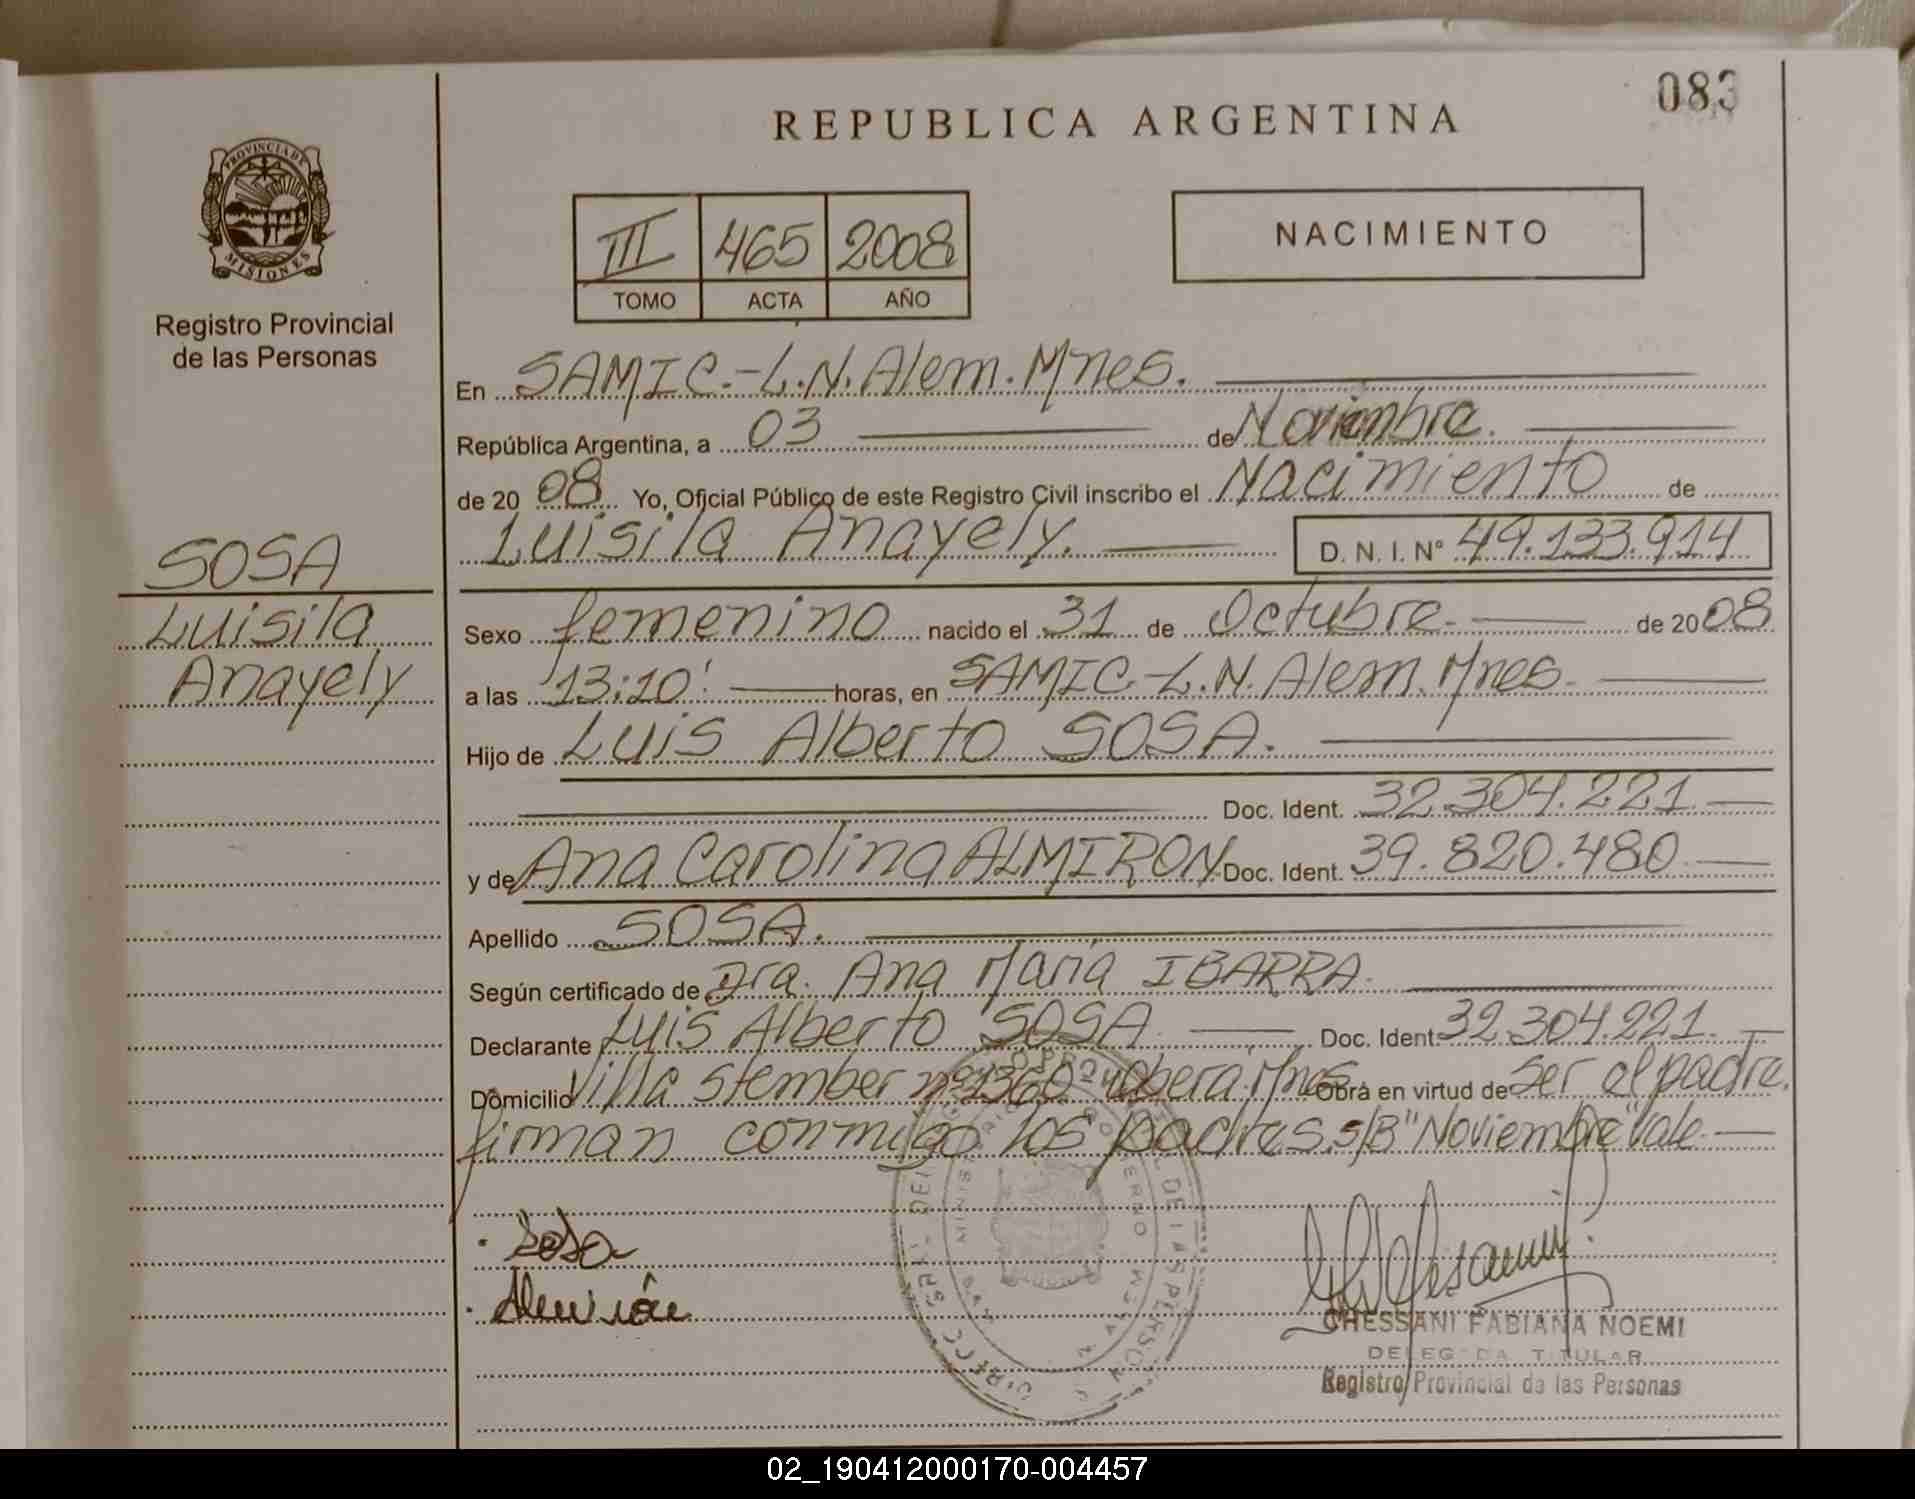 083
REPUBLICA ARGENTINA
PROVINCIA DE
MISIONES
Registro Provincial
de las Personas
III 465 2008
TOMO ACTA AÑO
NACIMIENTO
En SAMIC.-L.N.Alem.Mnes.
República Argentina, a 03 de Noviembre.
de 2008 Yo, Oficial Público de este Registro Civil inscribo el Nacimiento de
Luisila Anayely. D. N. I. Nº 49.133.914
SOSA
Luisila
Anayely
Sexo femenino nacido el 31 de Octubre. de 2008
a las 13:10' horas, en SAMIC-L.N.Alem.Mnes.
Hijo de Luis Alberto SOSA.
Doc. Ident. 32.304.221.
y de Ana Carolina ALMIRON Doc. Ident. 39.820.480
Apellido SOSA.
Según certificado de Dra. Ana María IBARRA.
Declarante Luis Alberto SOSA Doc. Ident 32.304.221.
Domicilio Villa Stember nº1360 Mnes. Obra en virtud de ser el padre.
firman conmigo los padres. s/B "Noviembre" Vale.
Sosa
CHESSANI FABIANA NOEMI
DELEGADA TITULAR
Registro Provincial de las Personas
02_190412000170-004457